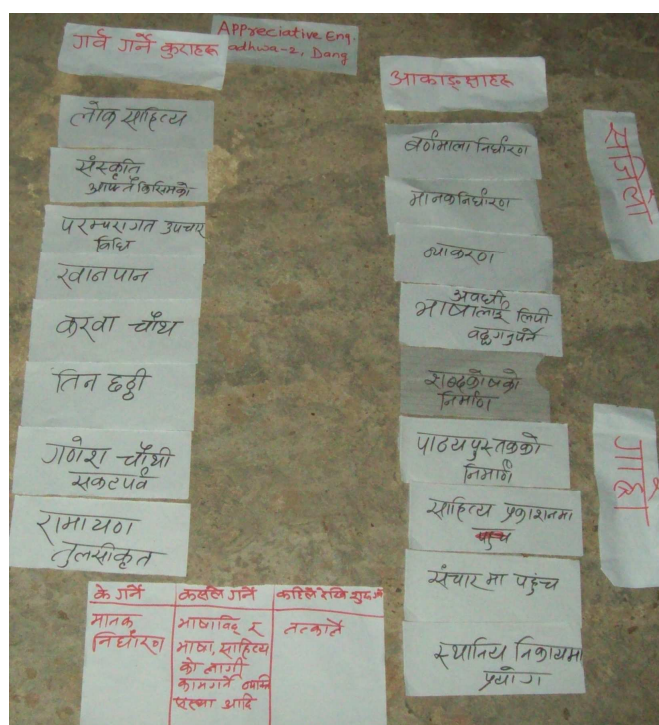 गर्व गर्ने कुराहरू
Appreciative Enq.
adhwa-2, Dang
लोक साहित्य
संस्कृति
आफ्नै किसिमको
परम्परागत उपचार
विधि
खानपान
करवा चौथ
तिन छठ्ठी
गणेश चौथी
सकटपर्व
रामायण
तुलसीकृत
आकाङ्क्षाहरू
बर्णमाला निर्धारण
मानक निर्धारण
व्याकरण
अवधी
भाषालाई लिपी
वद्ध गनुपर्ने
शब्दकोषको
निर्माण
पाठ्यपुस्तकको
निर्माण
साहित्य प्रकाशनमा
पहुच
संचार मा पहुंच
स्थानिय निकायमा
प्रयोग
सजिलो
गाह्रो
के गर्ने
कसले गर्ने
कहिले देखि शुरु गर्ने
मानक
निर्धारण
भाषाविद् र
भाषा, साहित्य
को लागी
कामगर्ने व्यक्ति
संस्था आदि
तत्कालै